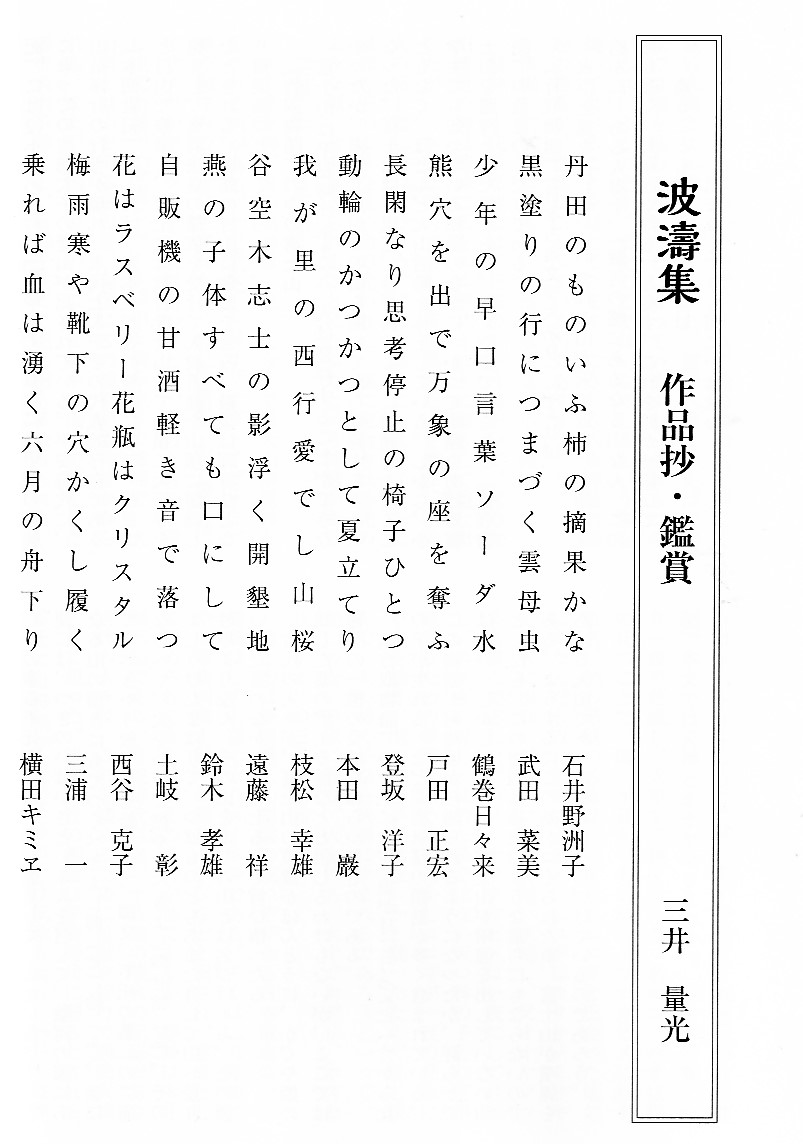 波濤集 作品抄・鑑賞 三井 量光
丹田のものいふ柿の摘果かな 石井野洲子
黒塗りの行につまづく雲母虫 武田 菜美
少年の早口言葉ソーダ水 鶴巻日々来
熊穴を出で万象の座を奪ふ 戸田 正宏
長閑なり思考停止の椅子ひとつ 登坂 洋子
動輪のかつかつとして夏立てり 本田 巖
我が里の西行愛でし山桜 枝松 幸雄
谷空木志士の影浮く開墾地 遠藤 祥
燕の子体すべても口にして 鈴木 孝雄
自販機の甘酒軽き音で落つ 土岐 彰
花はラスベリー花瓶はクリスタル 西谷 克子
梅雨寒や靴下の穴かくし履く 三浦 一
乗れば血は湧く六月の舟下り 横田キミヱ